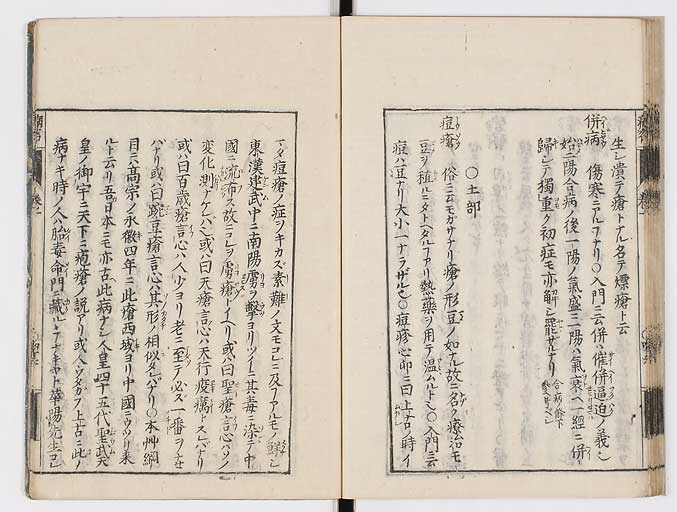 生シ潰テ瘡トナル名テ熛瘡ト云
併病 傷寒ニアルフナリ〇入門ニ云併ハ催併逼迫ノ義也
始二陽合病ノ後一陽ノ氣盛ニ一陽ハ氣衰ヘ一經ニ併
歸シテ獨重ク初症モ亦解シ罷ザナリ
〇土部
痘瘡 俗ニ云モガサナリ瘡ノ形豆ノ如ナル故ニ名ク療治モ
豆ヲ種ルニタトヘタルフアリ熱藥ヲ用テ溫ムルト也〇入門ニ云
痘ハ豆ナリ大小一ナラザル也〇痘疹心印ニ曰上古ノ時イ
マダ痘瘡ノ症ヲキカズ素難ノ文モコレニ及フアルモノ鮮シ
東漢建武中ニ南陽虜ヲ擊ヨリツイニ其毒ニ染テ中
國ニ流布ス故ニコレヲ虜瘡トイヘリ或ハ曰聖瘡言心ハソノ
變化測ナケレバ也或ハ曰天瘡言心ハ天行疫癘トスレバナリ
或ハ曰百歳瘡言心ハ人少ヨリ老ニ至テ必ズ一番ヲ在
バナリ或ハ曰豌豆瘡言心ハ其形ノ相似タレバナリ〇本艸綱
目ニ髙宗ノ永徽四年ニ此瘡西域ヨリ中國ニウツリ來
ルト云リ吾日本ニモ亦古此病ナシ人皇四十五代聖武天
皇ノ御宇ニ天下ニ疱瘡ノ説アリ或人ウタガフ上古ニ此ノ
病ナキ時ノ人ハ胎毒命門ニ藏ル